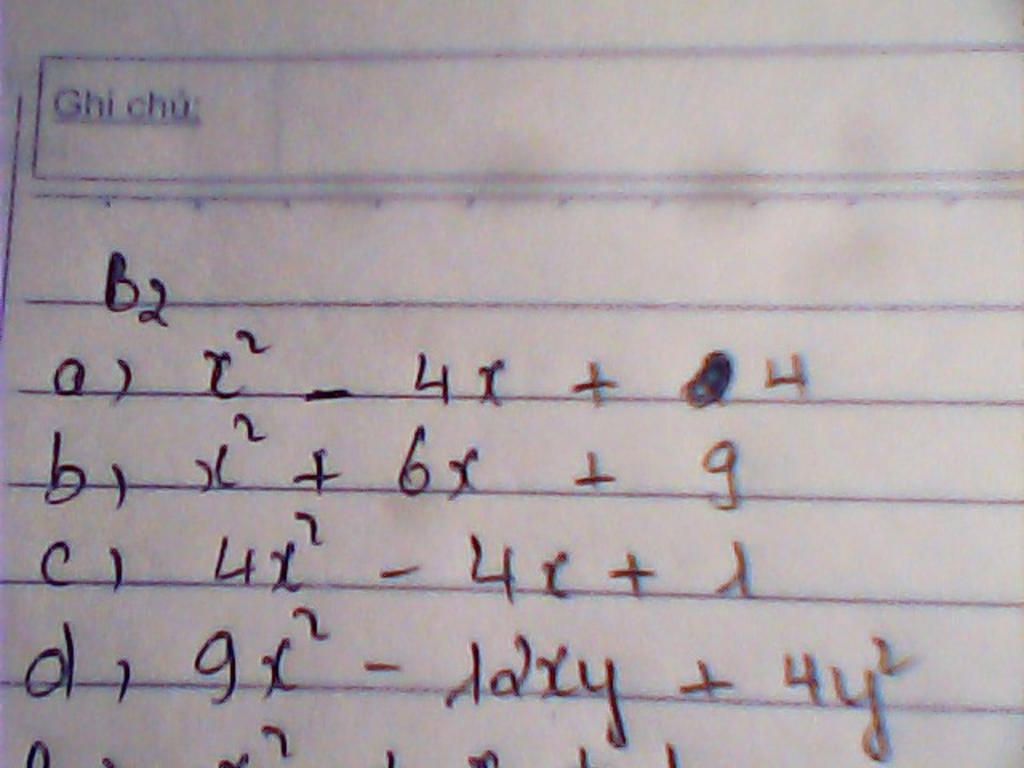 Ghi chú:
B2
a) x² - 4x + 4
b) x² + 6x + 9
c) 4x² - 4x + 1
d) 9x² - 12xy + 4y²